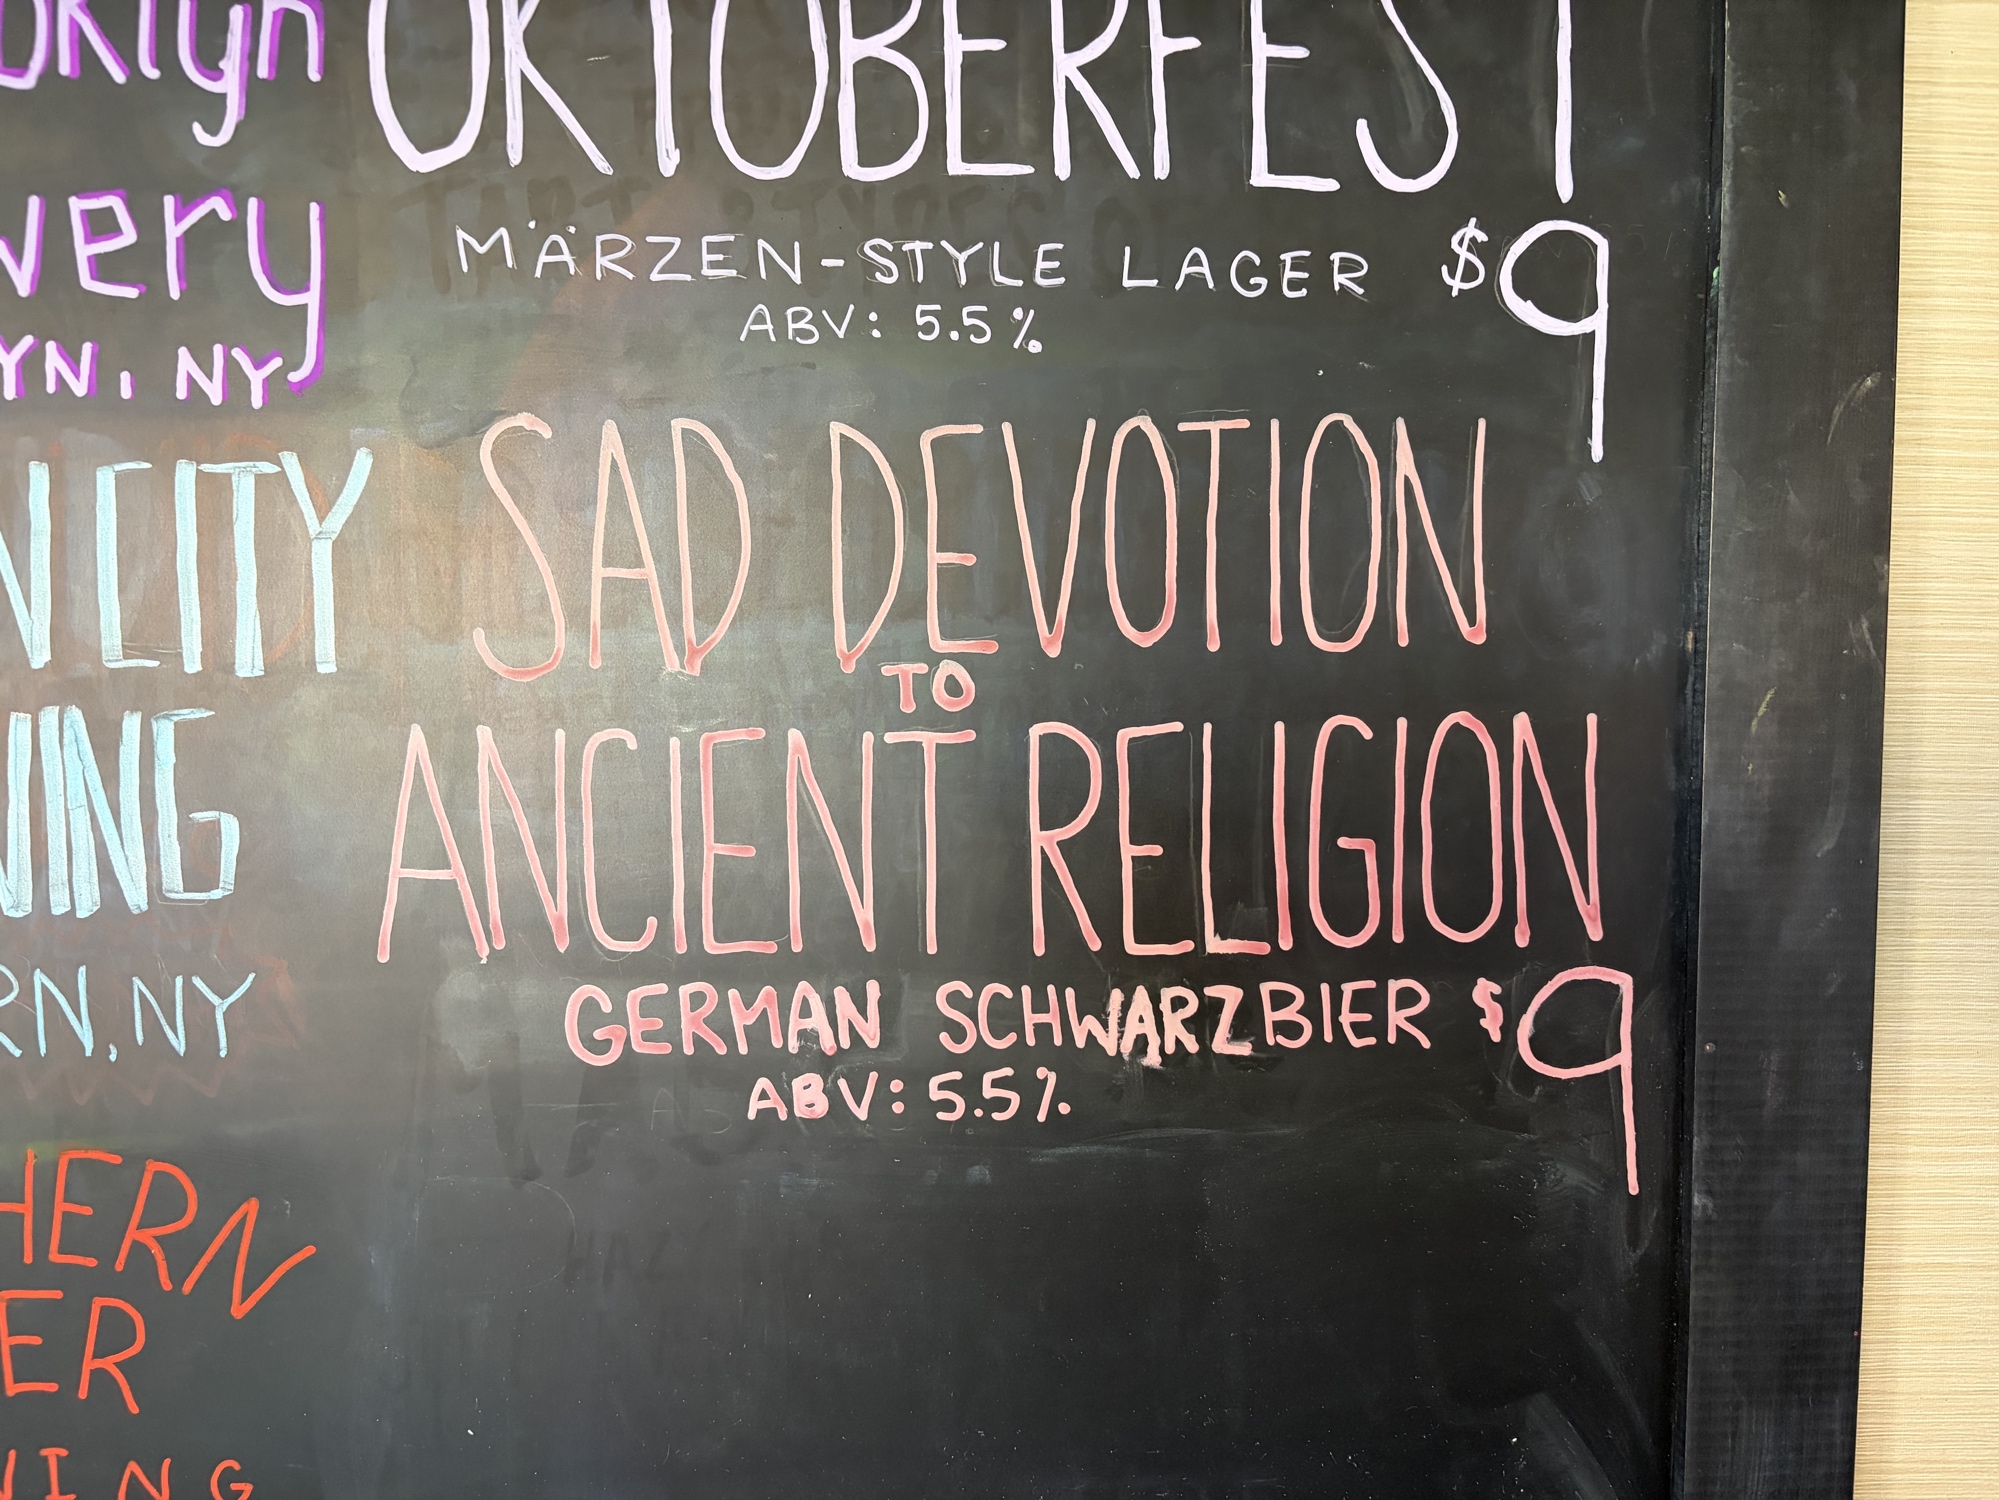 oklyn
OKTOBERFEST
wery
MÄRZEN-STYLE LAGER $9
ABV: 5.5%
YN, NY
SAD DEVOTION
N CITY
TO
ANCIENT RELIGION
ING
GERMAN SCHWARZBIER $9
RN, NY
ABV: 5.5%
HERN
ER
ING